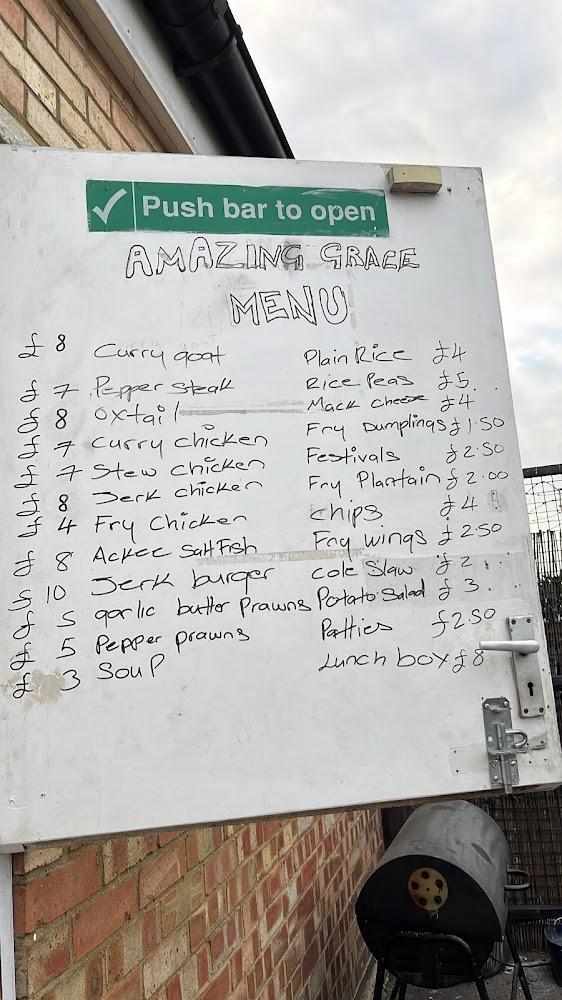 Push bar to open
AMAZING GRACE
MENU
£ 8 Curry goat
£ 7 Pepper steak
£ 8 oxtail
£ 7 Curry chicken
£ 7 Stew chicken
£ 8 Jerk chicken
£ 4 Fry Chicken
£ 8 Ackee SaltFish
£ 10 Jerk burger
£ 5 garlic butter Prawns
£ 5 Pepper prawns
£ 3 Soup
Plain Rice £4
Rice Peas £5
Mack cheese £4
Fry Dumplings £1.50
Festivals £2.50
Fry Plantain £2.00
chips £4
Fry wings £2.50
cole Slaw £2
Potato Salad £3
Patties £2.50
Lunch box £8